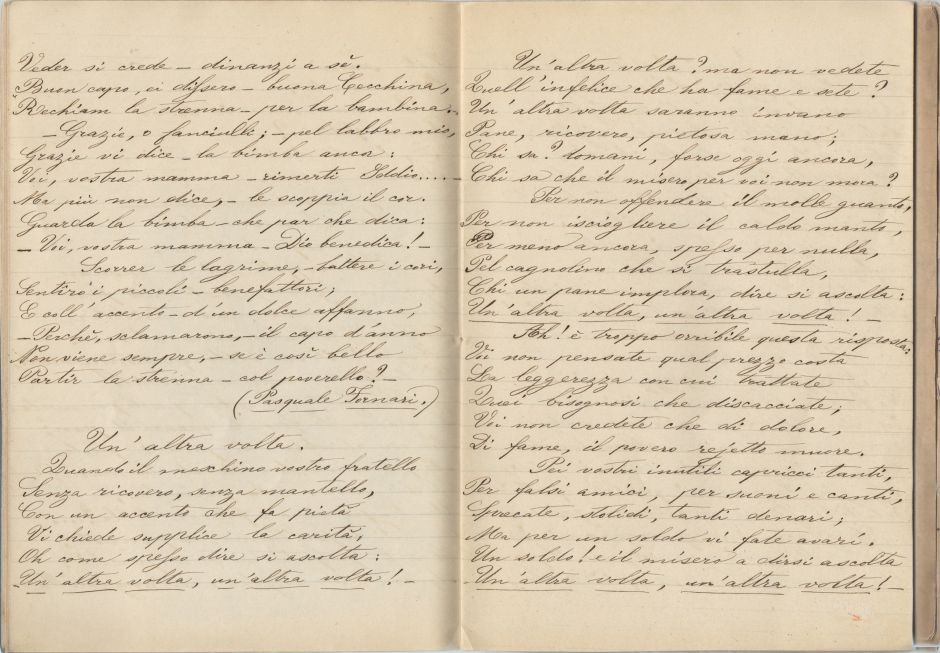 Veder si crede – dinanzi a sè.
Buon capo, ei dissero – buona Cecchina,
Rechiam la strenna – per la bambina.
– Grazie, o fanciulli; – pel labbro mio,
Grazie vi dice – la bimba anco:
Voi, vostra mamma – rimerti Iddio....–
Ma più non dice, – le scoppia il cor.
Guarda la bimba – che par che dica:
– Voi, vostra mamma – Dio benedica! –
Scorrer le lagrime, – battere i cori,
Sentiro i piccoli – benefattori;
E coll'accento – d'un dolce affanno,
– Perchè, sclamarono, – il capo d'anno
Non viene sempre, – se è così bello
Partir la strenna – col poverello? –
(Pasquale Fornari.)
Un'altra volta.
Quando il meschino vostro fratello
Senza ricovero, senza mantello,
Con un accento che fa pietà
Vi chiede supplice la carità,
Oh come spesso dire si ascolta:
Un'altra volta, un'altra volta! –
Un'altra volta? ma non vedete
Quell'infelice che ha fame e sete?
Un'altra volta saranno invano
Pane, ricovero, pietosa mano;
Chi sa? domani, forse oggi ancora,
Chi sa che il misero per voi non mora?
Per non offendere il molle guanto,
Per non isciogliere il caldo manto,
Per meno ancora, spesso per nulla,
Pel cagnolino che si trastulla,
Chi un pane implora, dire si ascolta:
Un'altra volta, un'altra volta! –
Ah! è troppo orribile questa risposta;
Voi non pensate qual prezzo costa
La leggerezza con cui trattate
Quei bisognosi che discacciate;
Voi non credete che di dolore,
Di fame, il povero rejetto muore.
Pei vostri inutili capricci tanti,
Per falsi amici, per suoni e canti,
Sprecate, stolidi, tanti denari;
Ma per un soldo vi fate avari.
Un soldo! e il misero a dirsi ascolta
Un'altra volta, un'altra volta! –